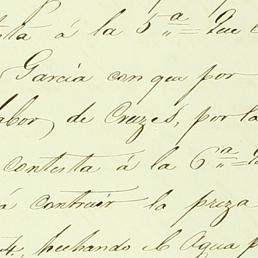 sta á la 5ª Que
Garcia con que por
labor, de Cruzes, por la
contesta á la 6ª
á contruir la preza
4, hechando el Agua p